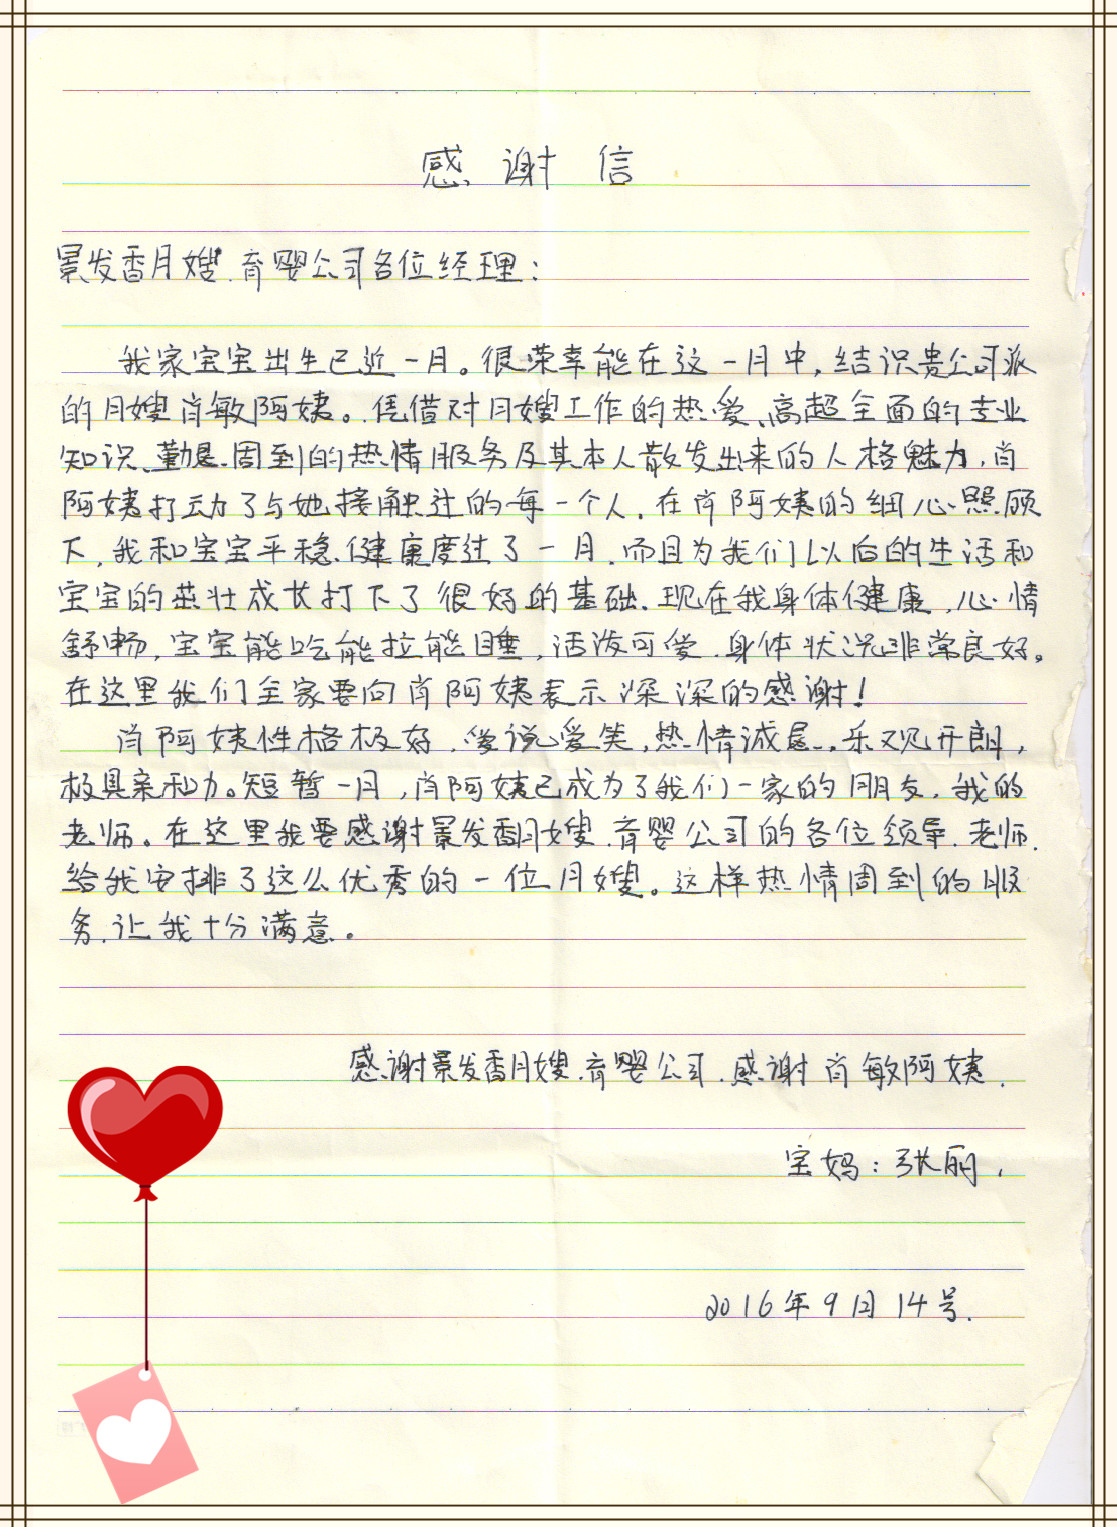 感谢信
景发香月嫂.育婴公司各位经理:
我家宝宝出生已近一月。很荣幸能在这一月中,结识贵公司派
的月嫂肖敏阿姨。凭借对月嫂工作的热爱、高超全面的专业
知识、勤恳.周到的热情服务及其本人散发出来的人格魅力,肖
阿姨打动了与她接触过的每一个人.在肖阿姨的细心照顾
下,我和宝宝平稳.健康度过了一月.而且为我们以后的生活和
宝宝的茁壮成长打下了很好的基础.现在我身体健康,心情
舒畅,宝宝能吃能拉能睡,活泼可爱.身体状况非常良好。
在这里我们全家要向肖阿姨表示深深的感谢!
肖阿姨性格极好,爱说爱笑,热情诚恳.乐观开朗,
极具亲和力。短暂一月,肖阿姨已成为了我们一家的朋友,我的
老师。在这里我要感谢景发香月嫂.育婴公司的各位领导.老师.
给我安排了这么优秀的一位月嫂。这样热情周到的服
务.让我十分满意。
感谢景发香月嫂.育婴公司.感谢肖敏阿姨.
宝妈:张丽.
2016年9月14号.